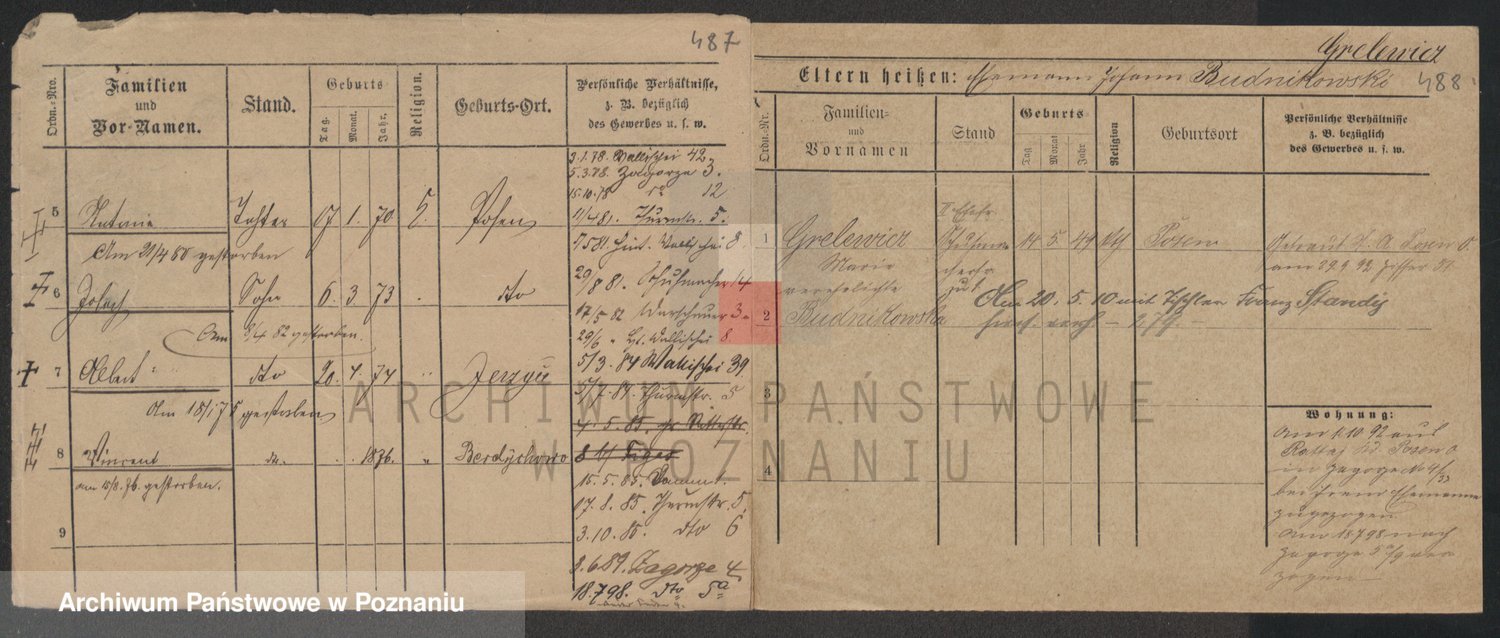 487
Ordn.-Nro.
Familien
und
Vor-Namen.
Stand.
Geburts
Tag.
Monat.
Jahr.
Religion.
Geburts-Ort.
Persönliche Verhältnisse,
z. B. bezüglich
des Gewerbes u. s. w.
3.1.78. Wallischei 42
5.3.78. Zagorze 3.
15.10.78 12
5
Antonie
Tochter
17. 1. 70
Posen
11/4 81. Thurmstr. 5.
Am 21/4 80 gestorben
7.5 81. Hint. Wallischei 8.
6
Joseph
Sohn
6. 3. 73
dto
29/8 81. Schuhmacher 14
17/5 82 Warschauer 3.
Am 9/4 82 gestorben.
29/6 " Wallischei 8
7
Albert "
dto
20. 4. 74
"
Jerzyce
5/3. 84 Wallischei 39
5/7. 84. Thurmstr. 5
Am 18/1 75 gestorben
4. 5. 85. gr. Ritterstr.
8
Vincent
1876.
"
Berdychowo
am 15/8. 76. gestorben.
15. 5. 85. Damm 1.
17. 8. 85. Thurmstr. 5.
9
3. 10. 85. dto 6
2.6.89. Zagorze 4
18.7.98. dto 5a
Grelewicz
Eltern heißen: Ehemann Johann Budnikowski
488
Ordn.-Nr.
Familien-
und
Vornamen
Stand
Geburts
Tag
Monat
Jahr
Religion
Geburtsort
Persönliche Verhältnisse
z. B. bezüglich
des Gewerbes u. s. w.
II Ehefr
1
Grelewicz
14. 5. 49
Posen
Getraut St. A. Posen
Marie
am 29.9.92 Ziffer 81
verehelichte
2
Budnikowska
Am 20. 5. 10 mit Tischler Franz Standiz
3
4
Wohnung:
Am 1.10 92 aus
Rattaj Posen
in Zagorze No 4/
bei ihrem Ehemanne
zugezogen
Am 18 7 98 nach
Zagorze 5a ver
zogen
ARCHIWUM PAŃSTWOWE
W POZNANIU
Archiwum Państwowe w Poznaniu